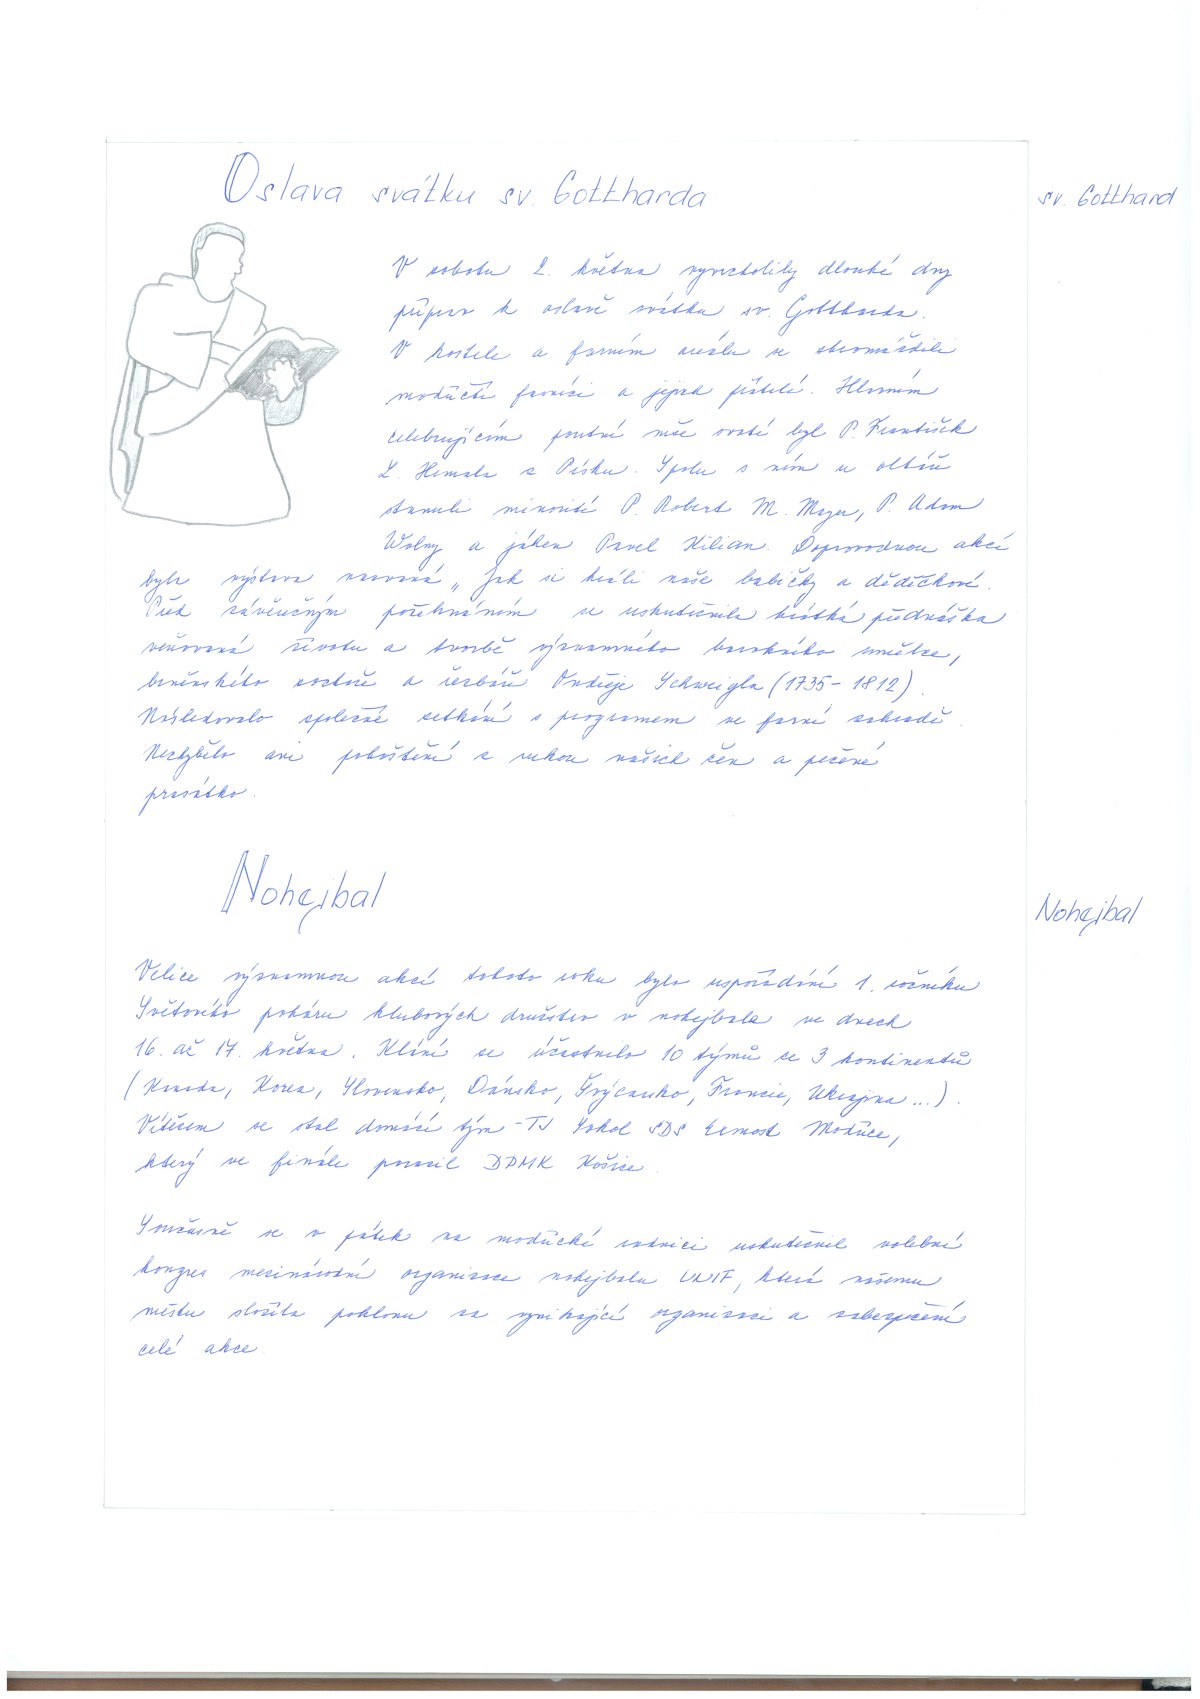 Oslava svátku sv. Gottharda
sv. Gotthard
V sobotu 2. května vyvrcholily dlouhé dny
příprav k oslavě svátku sv. Gottharda.
V kostele a farním areálu se shromáždili
modřičtí farníci a jejich přátelé. Hlavním
celebrujícím poutní mše svaté byl P. František
L. Hemala z Písku. Spolu s ním u oltáře
stanuli minorité P. Robert M. Mayer, P. Adam
Wolny a jáhen Pavel Kilian. Doprovodnou akcí
byla výstava nazvaná „Jak si hráli naše babičky a dědečkové.
Před závěrečným požehnáním se uskutečnila krátká přednáška
věnovaná životu a tvorbě významného barokního umělce,
brněnského sochaře a řezbáře Ondřeje Schweigla (1735-1812).
Následovalo společné setkání s programem ve farní zahradě.
Nechybělo ani pohoštění z rukou našich žen a pečené
prasátko.
Nohejbal
Nohejbal
Velice významnou akcí tohoto roku bylo uspořádání 1. ročníku
Světového poháru klubových družstev v nohejbale ve dnech
16. až 17. května. Klání se účastnilo 10 týmů ze 3 kontinentů
(Kanada, Korea, Slovensko, Dánsko, Švýcarsko, Francie, Ukrajina...).
Vítězem se stal domácí tým - TJ Sokol SDS Exmost Modřice,
který ve finále porazil DPMK Košice.
Současně se v pátek na modřické radnici uskutečnil volební
kongres mezinárodní organizace nohejbalu UNIF, která našemu
městu složila poklonu za vynikající organizaci a zabezpečení
celé akce.